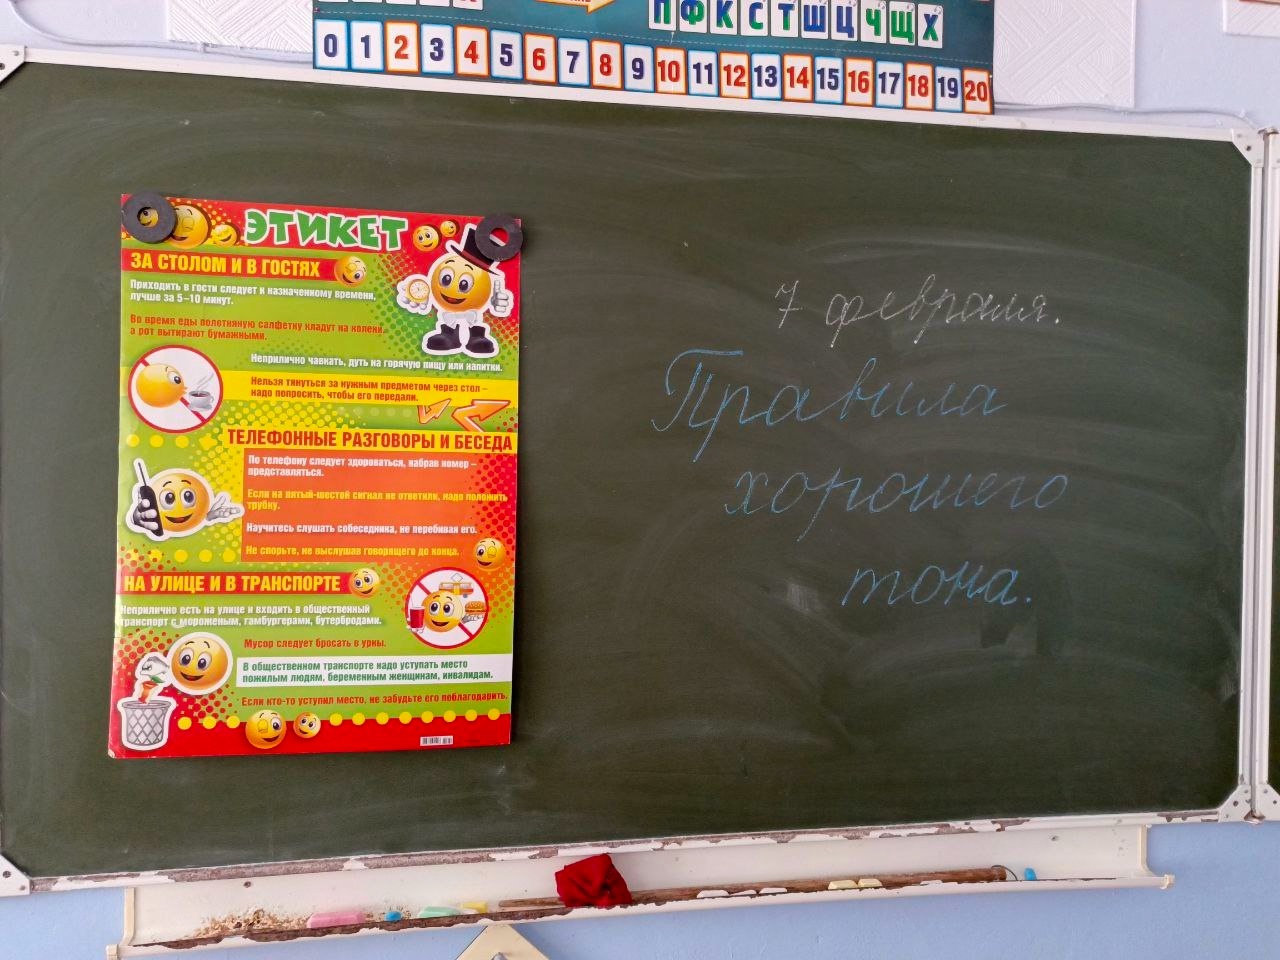 П Ф К С Т Ш Ц Ч Щ Х
0 1 2 3 4 5 6 7 8 9 10 11 12 13 14 15 16 17 18 19 20
ЭТИКЕТ
ЗА СТОЛОМ И В ГОСТЯХ
Приходить в гости следует к назначенному времени,
лучше за 5–10 минут.
Во время еды полотняную салфетку кладут на колени,
а рот вытирают бумажными.
Неприлично чавкать, дуть на горячую пищу или напитки.
Нельзя тянуться за нужным предметом через стол –
надо попросить, чтобы его передали.
ТЕЛЕФОННЫЕ РАЗГОВОРЫ И БЕСЕДА
По телефону следует здороваться, набрав номер –
представляться.
Если на пятый-шестой сигнал не ответили, надо положить
трубку.
Научитесь слушать собеседника, не перебивая его.
Не спорьте, не выслушав говорящего до конца.
НА УЛИЦЕ И В ТРАНСПОРТЕ
Неприлично есть на улице и входить в общественный
транспорт с мороженым, гамбургерами, бутербродами.
Мусор следует бросать в урны.
В общественном транспорте надо уступать место
пожилым людям, беременным женщинам, инвалидам.
Если кто-то уступил место, не забудьте его поблагодарить.
7 февраля.
Правила
хорошего
тона.